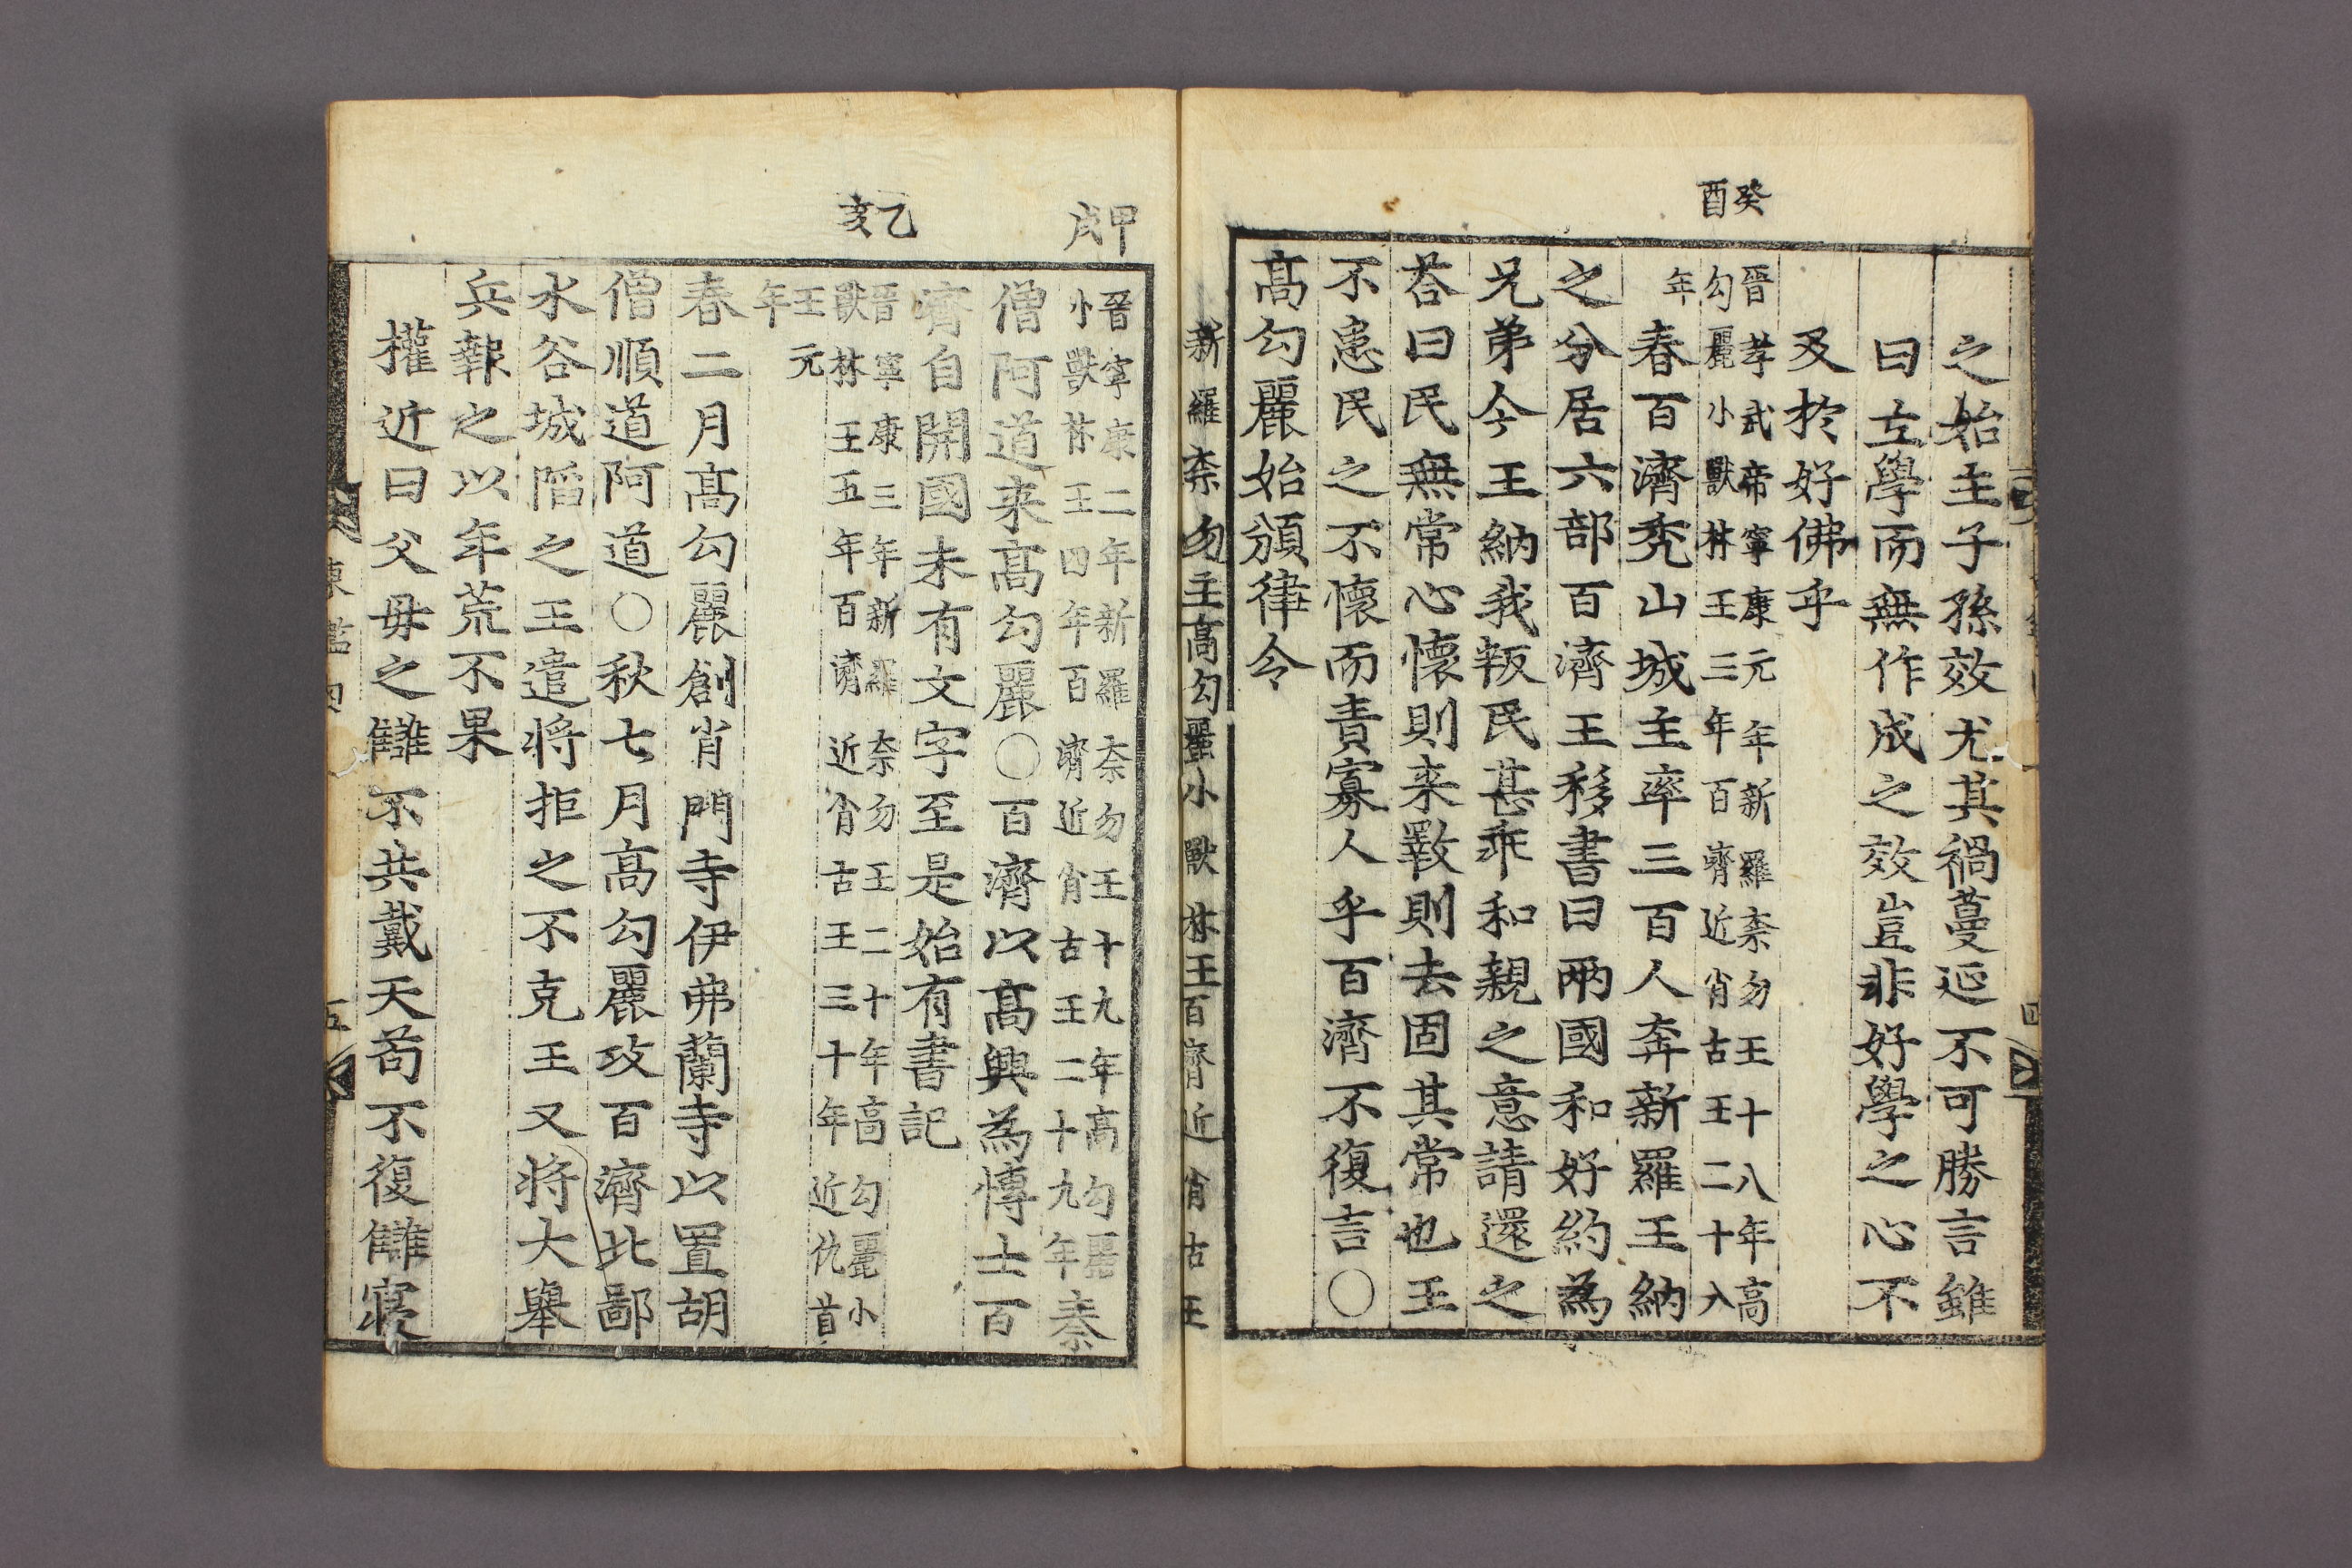 之始主子孫效尤其禍蔓延不可勝言雖
曰立學而無作成之效豈非好學之心不
及於好佛乎
癸酉
晉孝武帝寧康元年新羅奈勿王十八年高
勾麗小獸林王三年百濟近肖古王二十八
年
春百濟禿山城主率三百人奔新羅王納
之分居六部百濟王移書曰兩國和好約為
兄弟今王納我叛民甚乖和親之意請還之
荅曰民無常心懷則来斁則去固其常也王
不患民之不懷而責寡人乎百濟不復言〇
高勾麗始頒律令
新羅奈勿王高勾麗小獸林王百濟近肖古王
甲戌
晉寧康二年新羅奈勿王十九年高勾麗
小獸林王四年百濟近肖古王二十九年
秦
僧阿道来高勾麗〇百濟以高興為博士百
濟自開國未有文字至是始有書記
乙亥
晉寧康三年新羅奈勿王二十年高勾麗小
獸林王五年百濟近肖古王三十年近仇首
王元
年
春二月高勾麗創肖門寺伊弗蘭寺以置胡
僧順道阿道〇秋七月高勾麗攻百濟北鄙
水谷城䧟之王遣將拒之不克王又將大舉
兵報之以年荒不果
權近曰父母之讎不共戴天苟不復讎寢
東鑑四
五